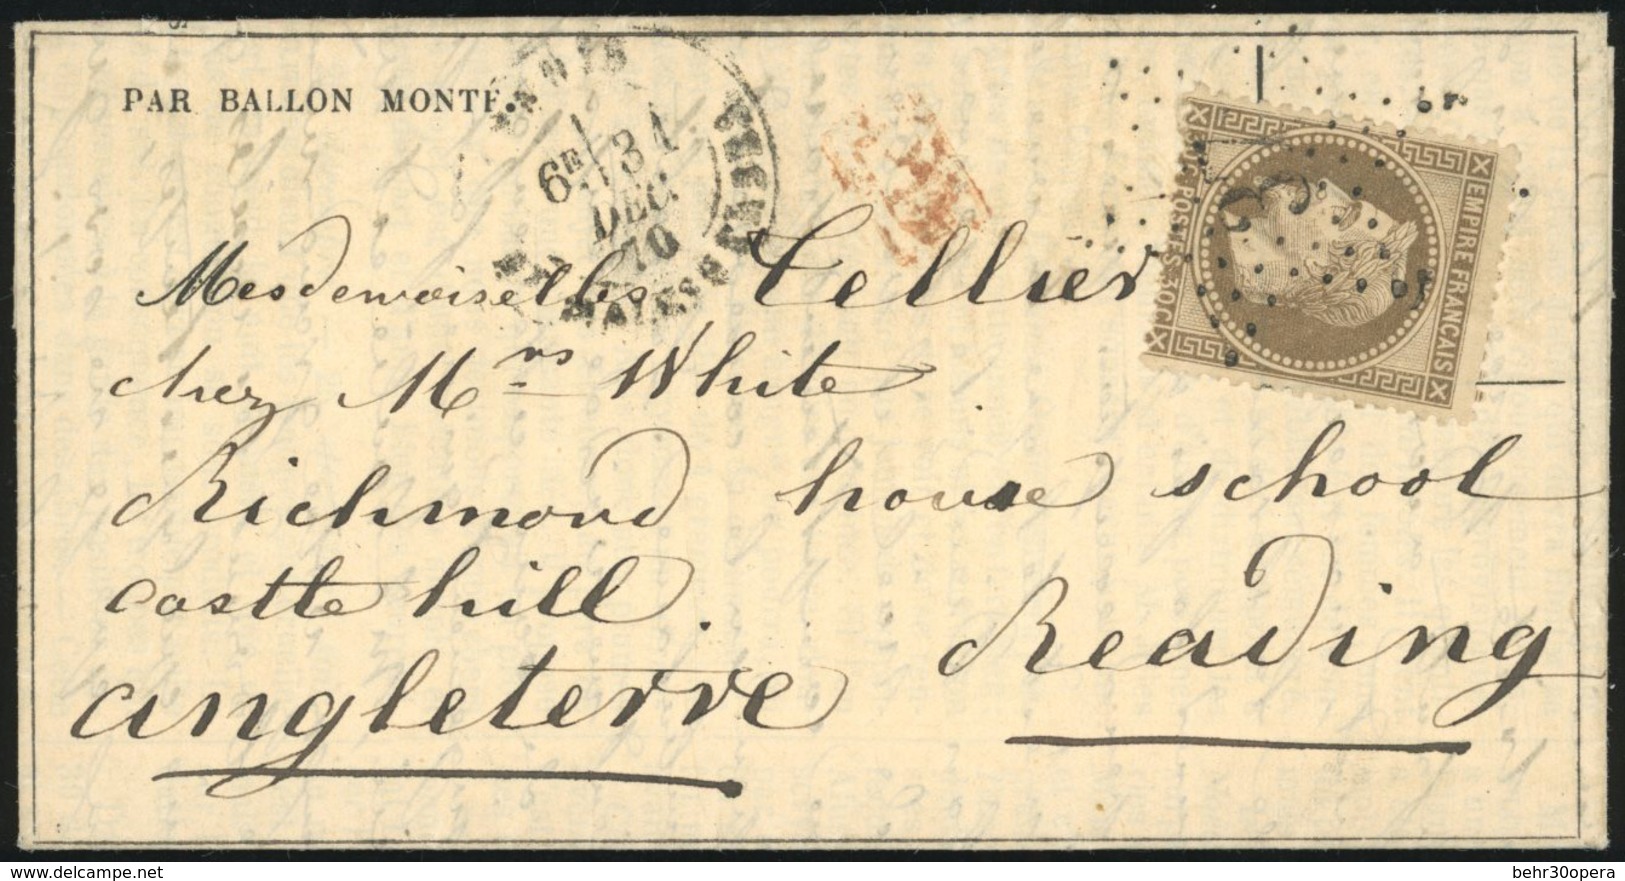 PAR BALLON MONTÉ.
PARIS
6E 31
DEC.
70
EMPIRE FRANÇAIS
30C. POSTES 30C.
Mesdemoiselles Tellier
chez Mrs White
Richmond house school
castle hill.
Reading
angleterre
delcampe.net
behr30opera